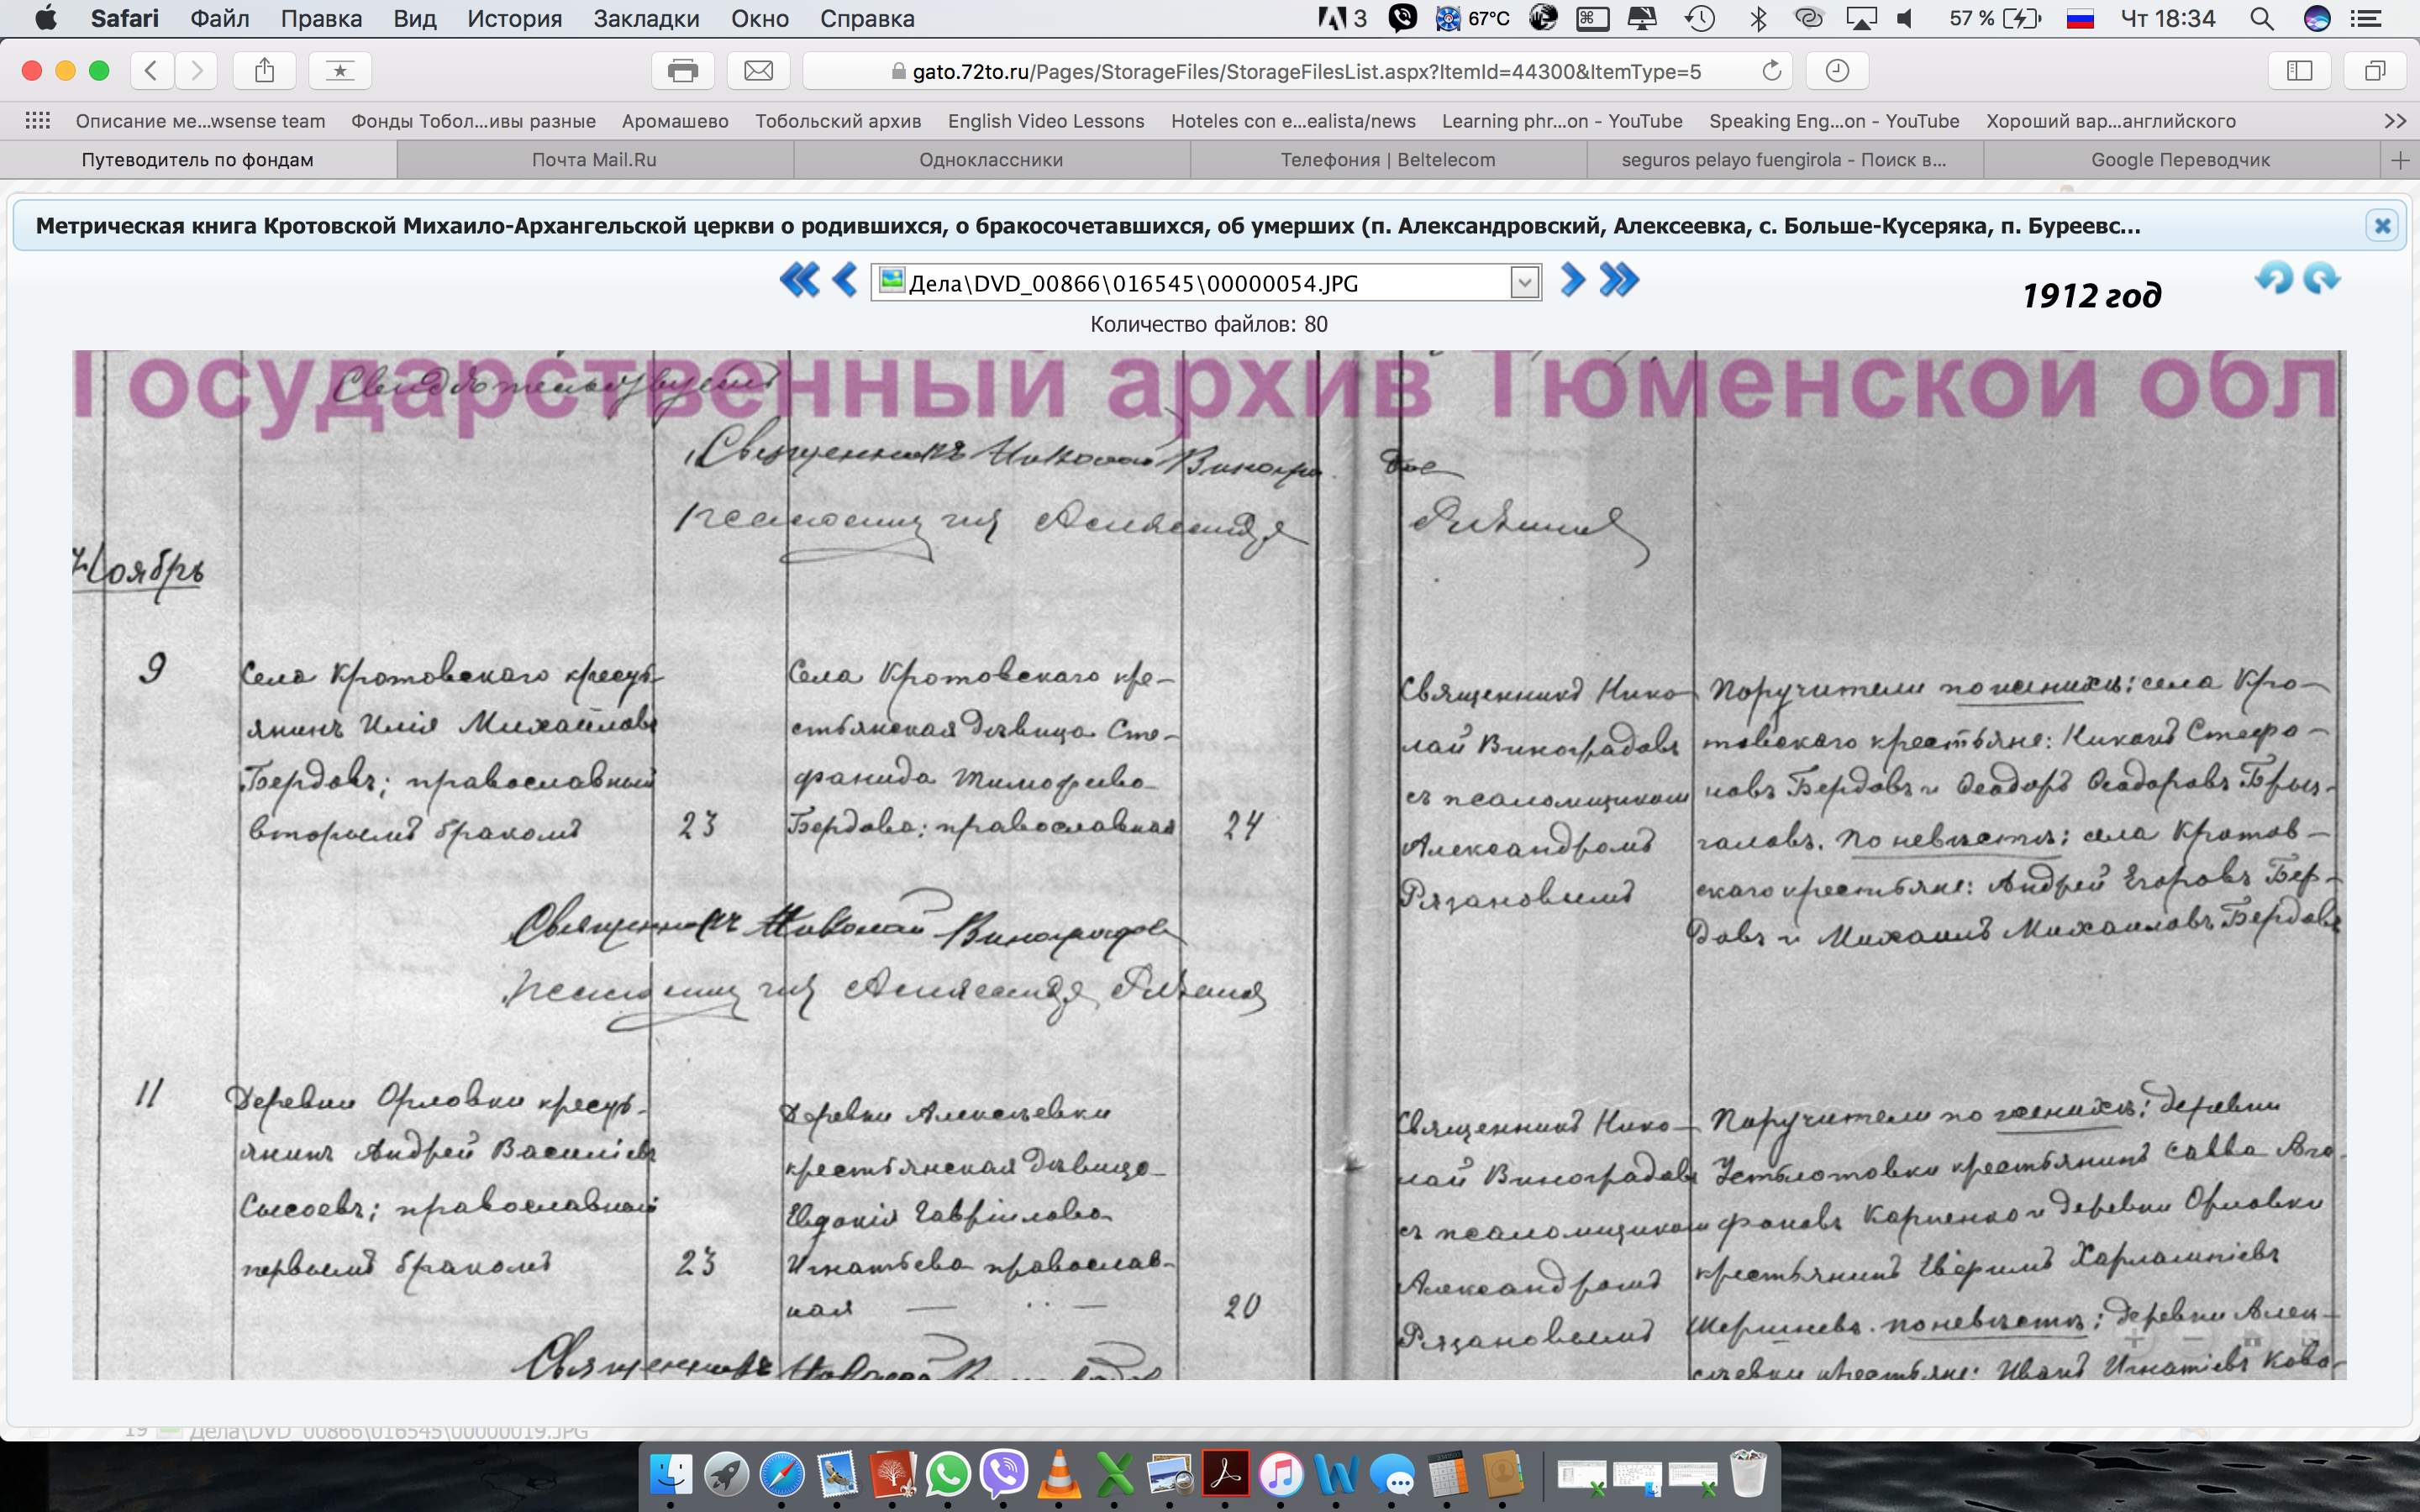 Safari Файл Правка Вид История Закладки Окно Справка 3 67°C 57 % Чт 18:34
gato.72to.ru/Pages/StorageFiles/StorageFilesList.aspx?ItemId=44300&ItemType=5
Описание ме...wsense team Фонды Тобол...ивы разные Аромашево Тобольский архив English Video Lessons Hoteles con e...ealista/news Learning phr...on - YouTube Speaking Eng...on - YouTube Хороший вар...английского
Путеводитель по фондам Почта Mail.Ru Одноклассники Телефония | Beltelecom seguros pelayo fuengirola - Поиск в... Google Переводчик
Метрическая книга Кротовской Михаило-Архангельской церкви о родившихся, о бракосочетавшихся, об умерших (п. Александровский, Алексеевка, с. Больше-Кусеряка, п. Буреевс...
Дела\DVD_00866\016545\00000054.JPG
1912 год
Количество файлов: 80
Государственный архив Тюменской обл
Свидѣтельствуетъ
Священникъ Николай Виногра дов
Псаломщик Александр
Ноябрь
9
Села Кротовскаго кресть-
янинъ Илія Михаиловъ
Бердовъ; православный
вторымъ бракомъ
23
Села Кротовскаго кре-
стьянская дѣвица Сте-
фанида Тимофеева
Бердова; православная
24
Священникъ Нико-
лай Виноградовъ
съ псаломщикомъ
Александромъ
Рязановымъ
Поручители по женихѣ: села Кро-
товскаго крестьяне: Стефа-
новъ Бердовъ и Ѳеодоръ Ѳеодоровъ Брын-
галовъ. По невѣстѣ: села Кротов-
скаго крестьяне: Андрей Егоровъ Бер-
довъ и Михаилъ Михаиловъ Бердовъ
Священникъ Николай Виноградов
Псаломщик Александр
11
Деревни Орловки кресть-
янинъ Андрей Василіевъ
Сысоевъ; православный
первымъ бракомъ
23
Деревни Алексѣевки
крестьянская дѣвица
Евдокія Гавріилова
Игнатьева православ-
ная
20
Священникъ Нико-
лай Виноградовъ
съ псаломщикомъ
Александромъ
Рязановымъ
Поручители по женихѣ: деревни
Устьлотовки крестьянинъ Савва Ага-
фоновъ Карпенко и деревни Орловки
крестьянинъ Харлампіевъ
по невѣстѣ: деревни Алек-
сѣевки крестьяне: Иванъ Игнатіевъ Кова-
Священникъ Николай Виноградов
19 Дела\DVD_00866\016545\00000019.JPG